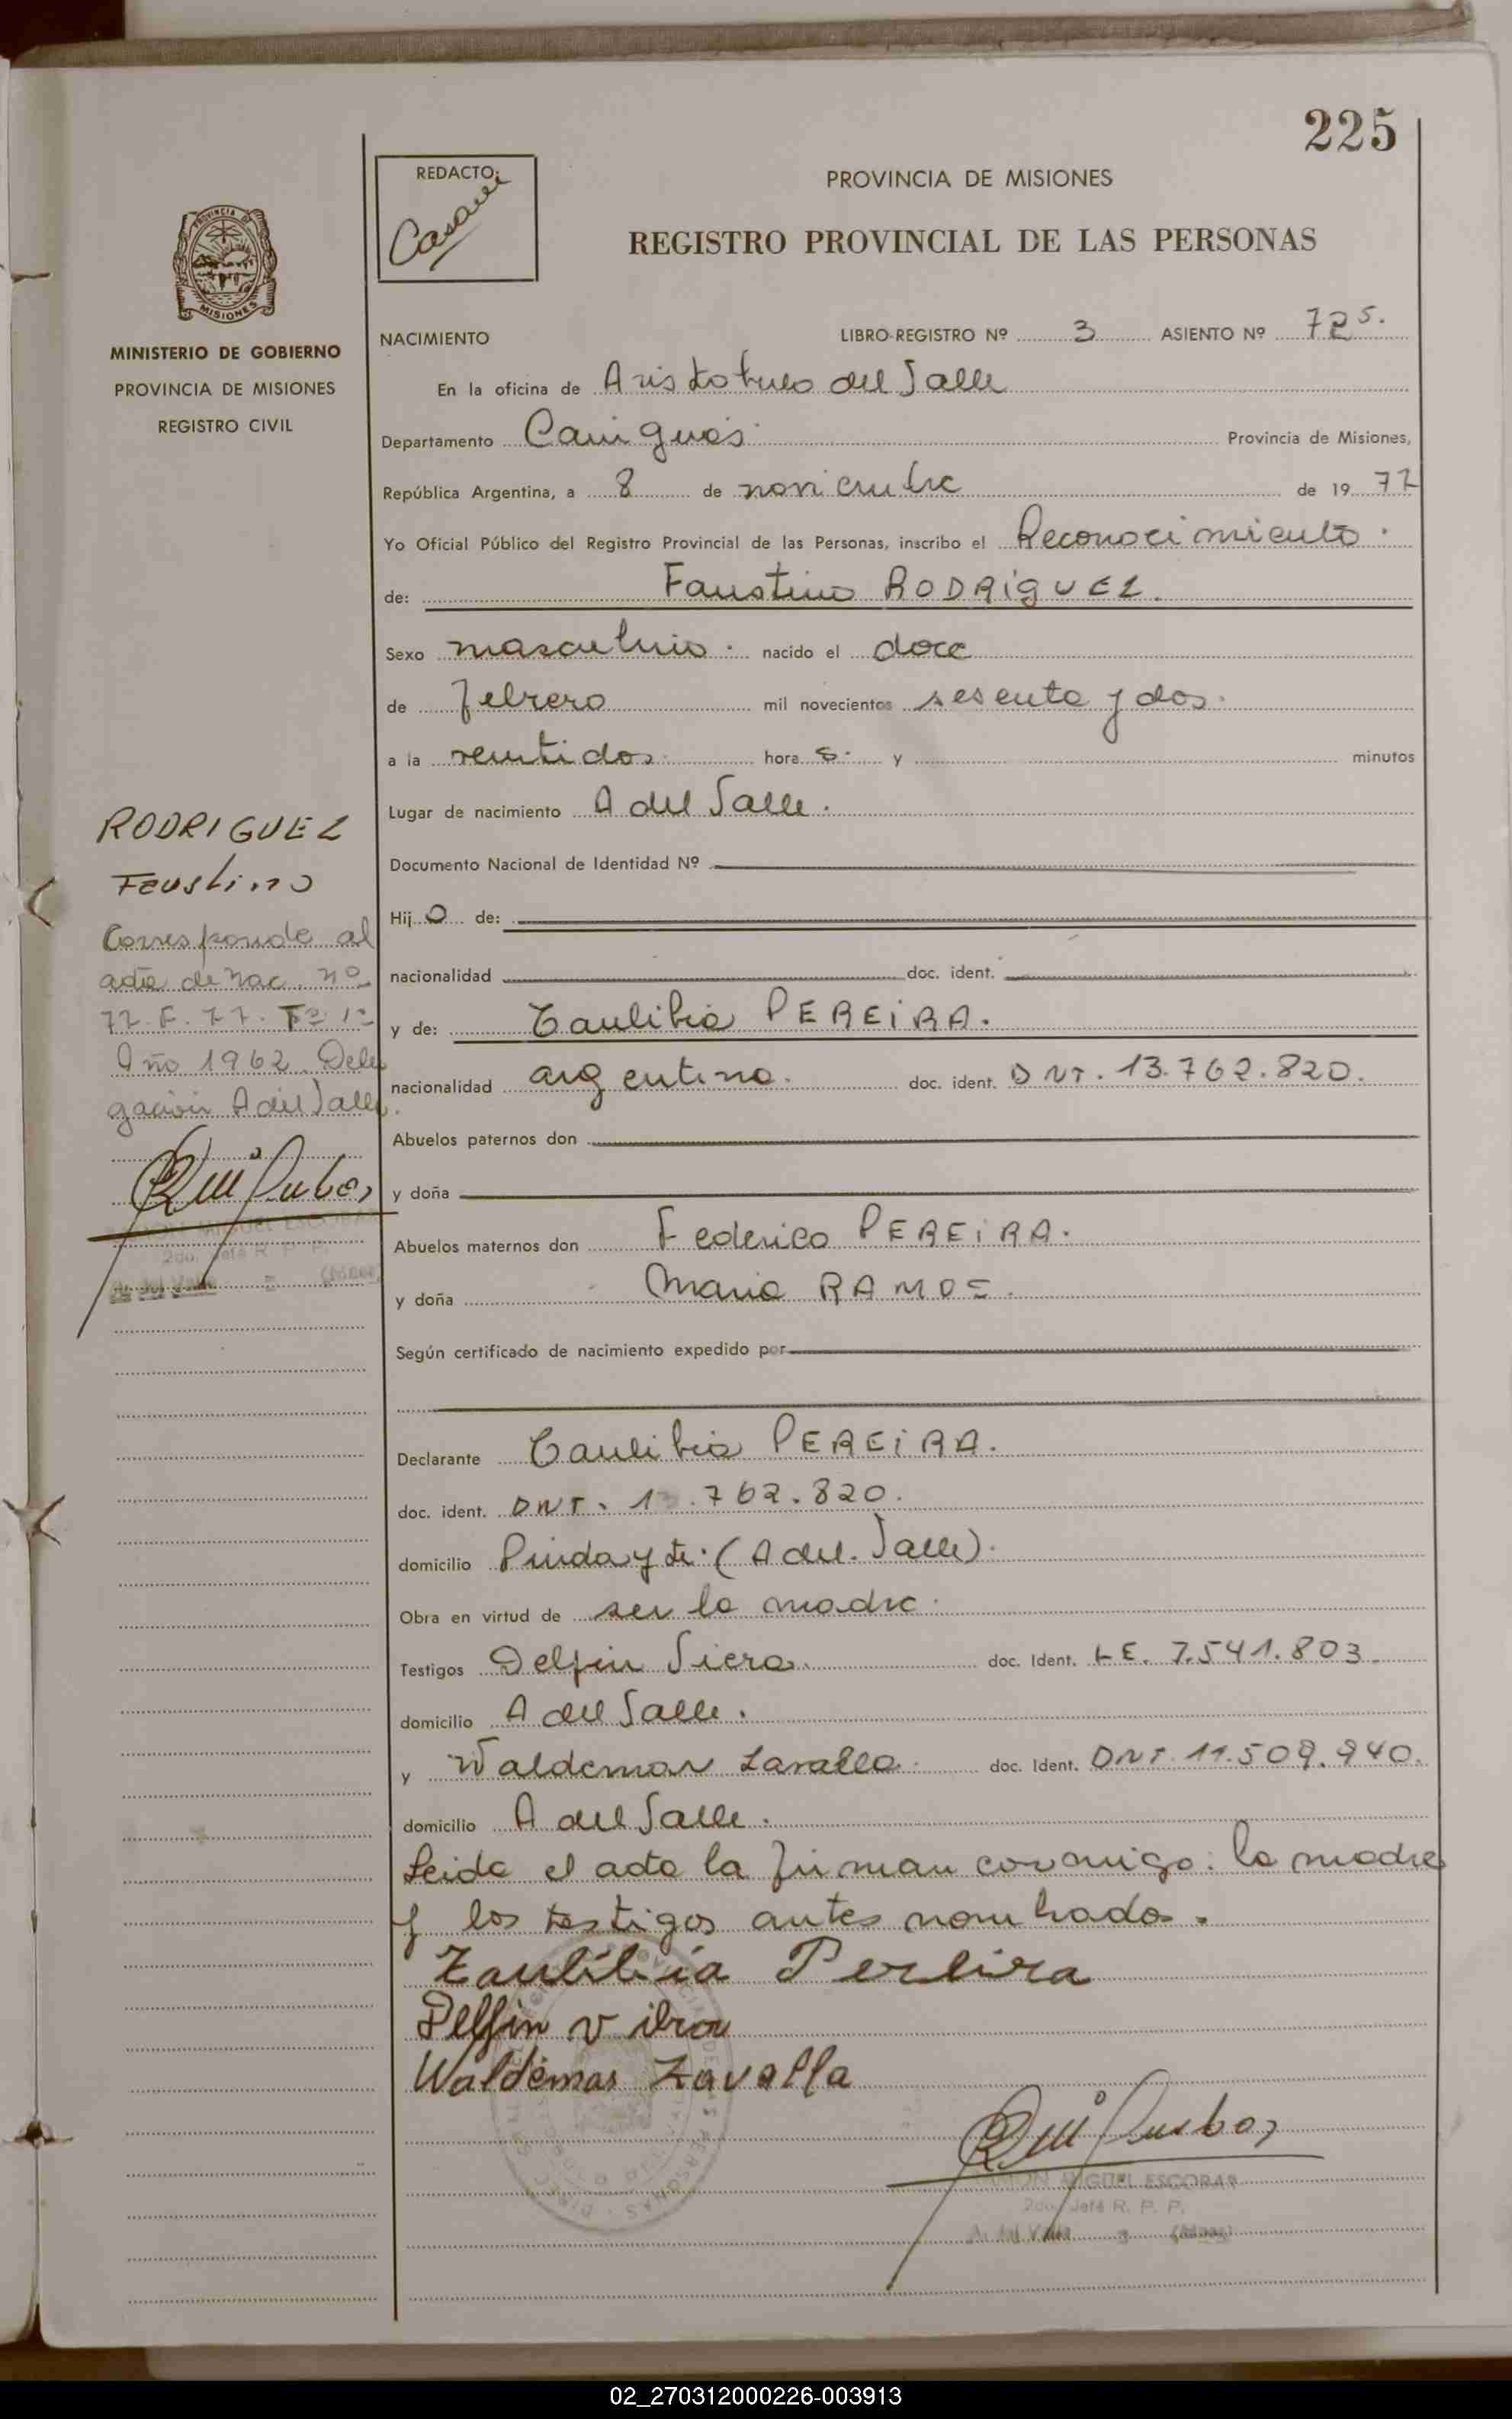 225
REDACTO:
Casares
PROVINCIA DE MISIONES
REGISTRO PROVINCIAL DE LAS PERSONAS
MISIONES
MINISTERIO DE GOBIERNO
PROVINCIA DE MISIONES
REGISTRO CIVIL
NACIMIENTO LIBRO-REGISTRO Nº 3 ASIENTO Nº 725.
En la oficina de Aristobulo del Valle
Departamento Cainguás Provincia de Misiones,
República Argentina, a 8 de noviembre de 1977
Yo Oficial Público del Registro Provincial de las Personas, inscribo el Reconocimiento.
de: Faustino RODRIGUEZ.
Sexo masculino. nacido el doce
de febrero mil novecientos sesenta y dos.
a la veintidos. hora s. y minutos
Lugar de nacimiento A del Valle.
Documento Nacional de Identidad Nº
Hij o de:
nacionalidad doc. ident.
y de: Taulibia PEREIRA.
nacionalidad argentina. doc. ident. DNI. 13.762.820.
Abuelos paternos don
y doña
Abuelos maternos don Federico PEREIRA.
y doña Maria RAMOS.
Según certificado de nacimiento expedido por
Declarante Taulibia PEREIRA.
doc. ident. DNI. 13.762.820.
domicilio Pindayti. (A del. Valle).
Obra en virtud de ser la madre.
Testigos Delfin Viera. doc. Ident. LE. 7.541.803.
domicilio A del Valle.
y Waldemar Zavalla. doc. Ident. DNI. 11.509.940.
domicilio A del Valle.
Leida el acta la firman conmigo: la madre
y los testigos antes nombrados.
Zaulibia Pereira
Delfin viera
Waldemar Zavalla
RAMON MIGUEL ESCOBAR
2do. Jefe R. P. P.
A. del Valle = (Mnes)
RODRIGUEZ
Faustino
Corresponde al
acta de nac. nº
77. F. 77. Tº 1º
Año 1962. Dele
gación A del Valle.
RAMON MIGUEL ESCOBAR
2do. Jefe R. P. P.
A. del Valle = (Mnes)
02_270312000226-003913